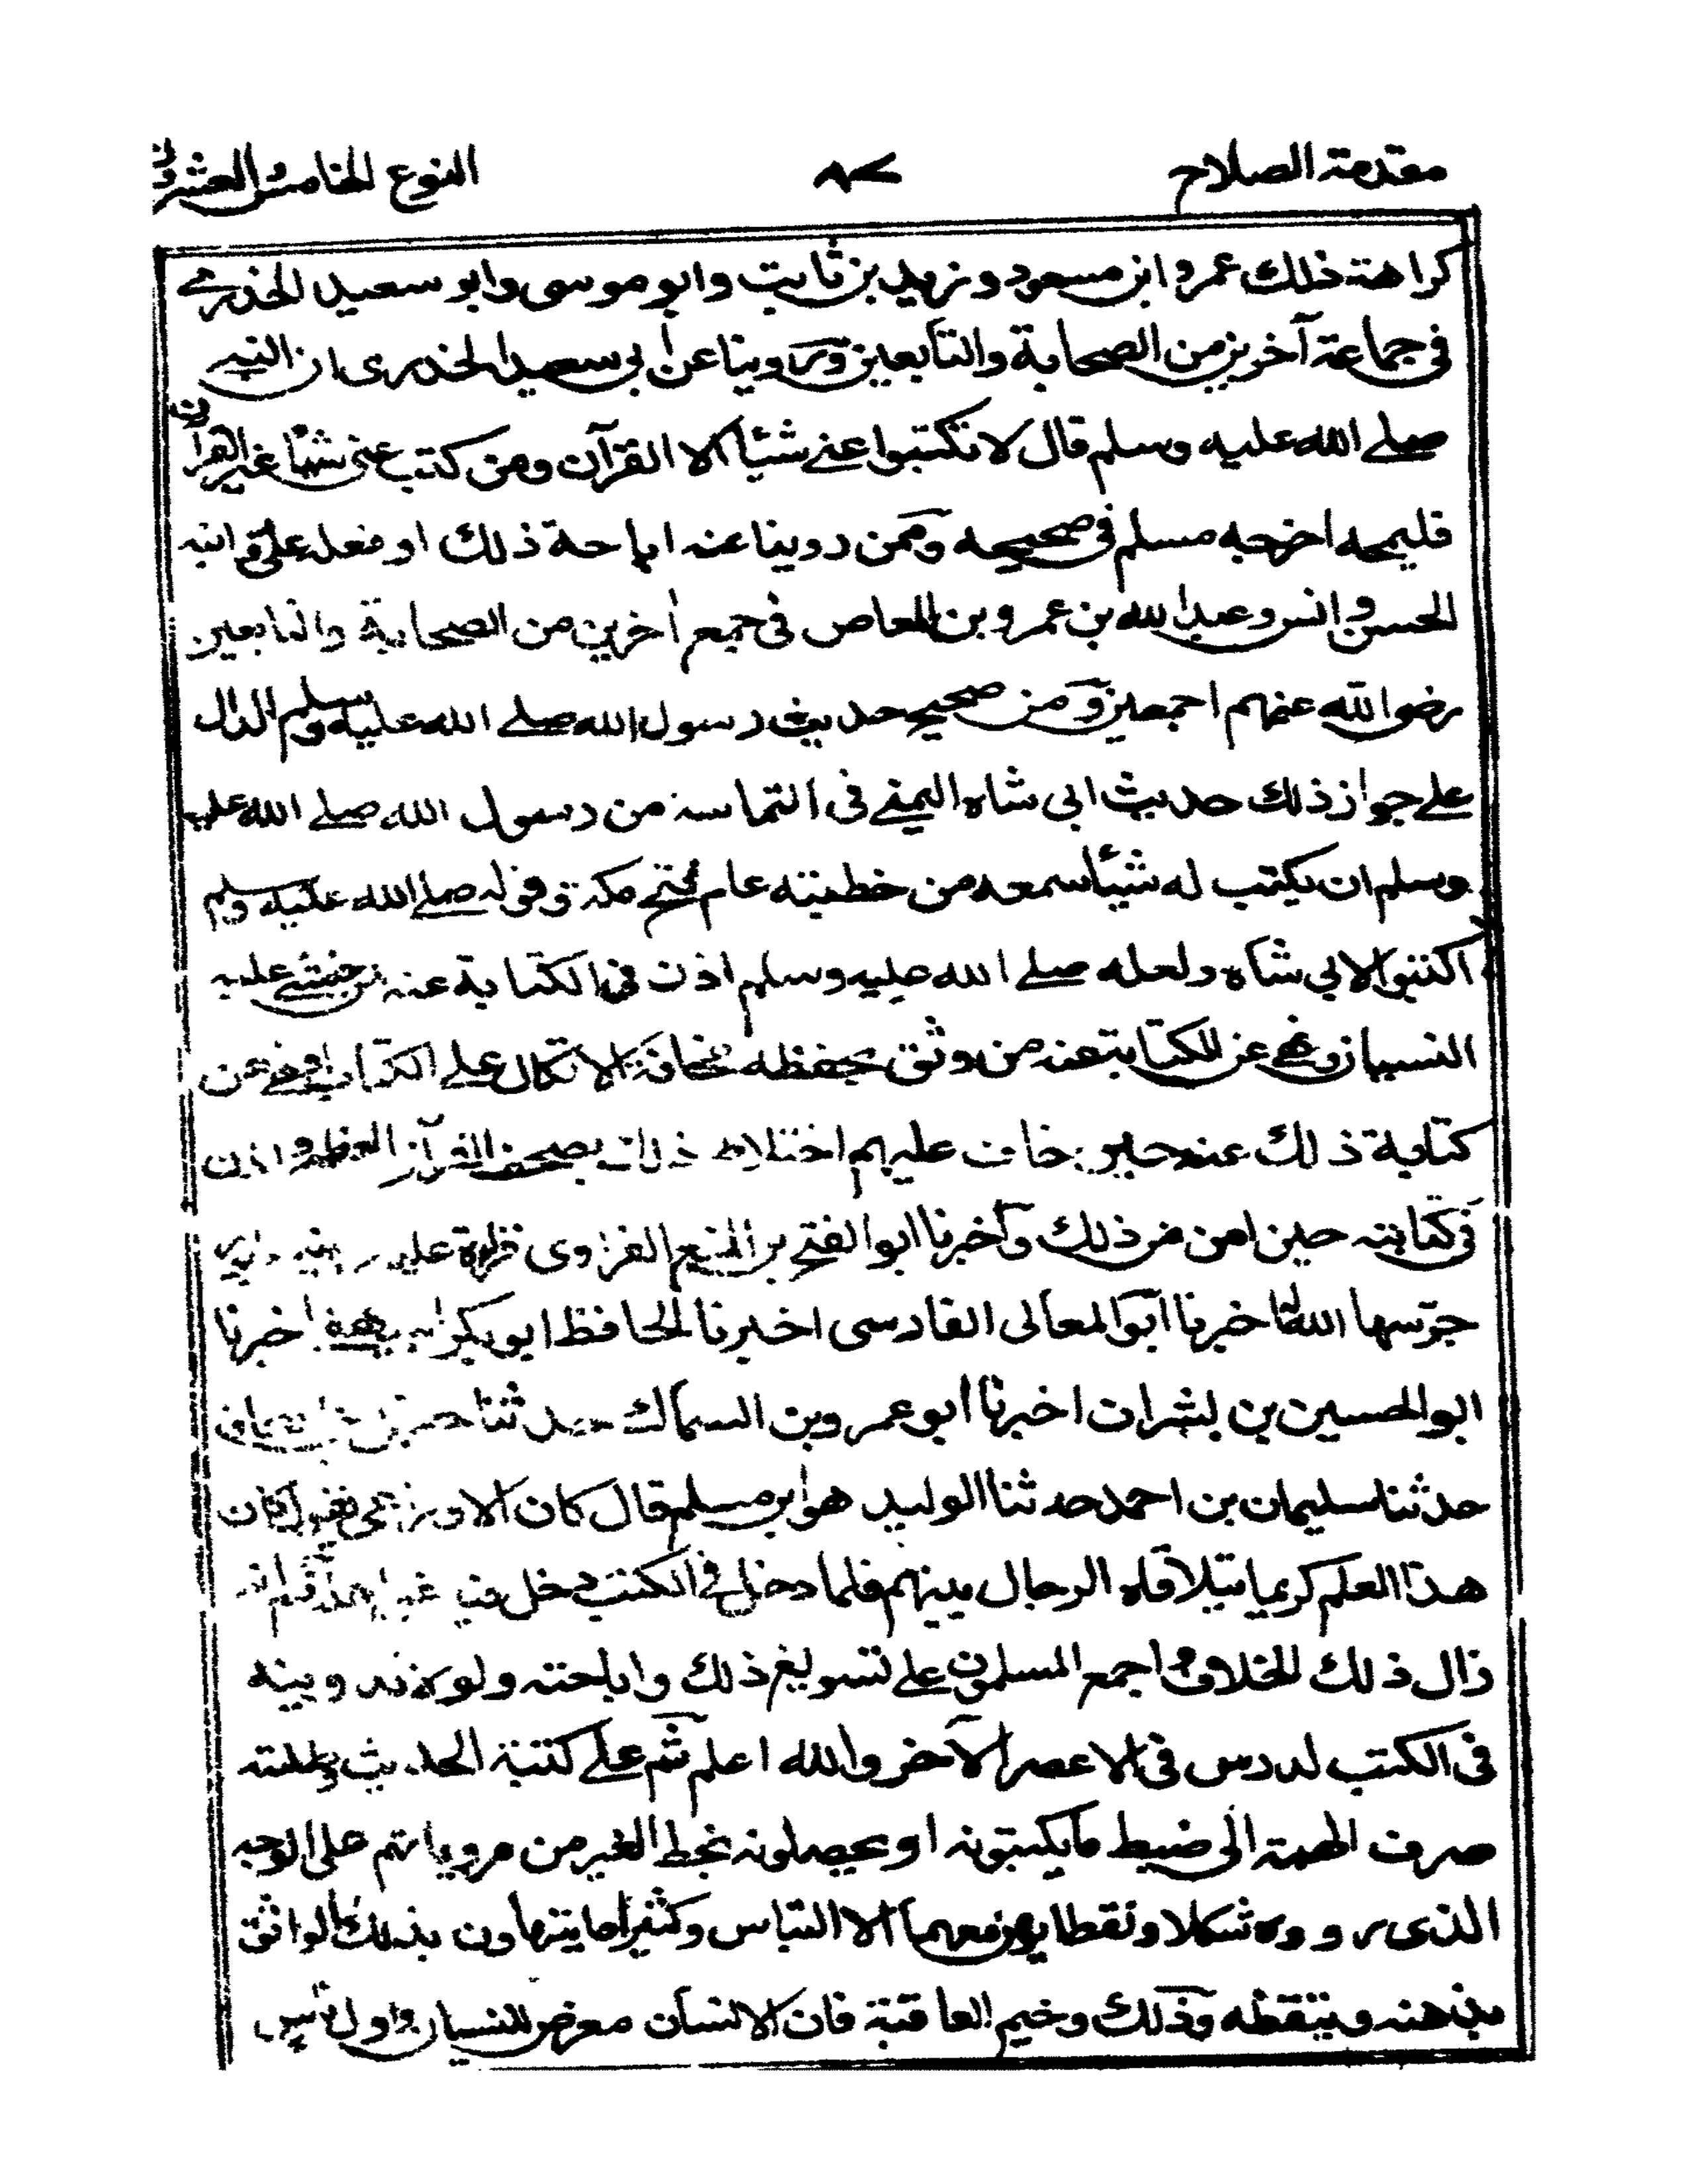 مقدمة الصلاح ٨٧ النوع الخامس والعشرون
كراهة ذلك عمر و ابن مسعود و زيد بن ثابت وابو موسى وابو سعيد الخدرى
فى جماعة آخرين من الصحابة والتابعين و روينا عن ابى سعيد الخدرى ان النبى
صلى الله عليه وسلم قال لا تكتبوا عنى شيئا الا القرآن ومن كتب عنى شيئا غير القرآن
فليمحه اخرجه مسلم فى صحيحه وممن روينا عنه اباحة ذلك او فعله على و ابنه
الحسن و انس و عبد الله بن عمرو بن العاص فى جمع آخرين من الصحابة والتابعين
رضى الله عنهم اجمعين و من صحيح حديث رسول الله صلى الله عليه وسلم الدال
على جواز ذلك حديث ابى شاه اليمنى فى التماسه من رسول الله صلى الله عليه
وسلم ان يكتب له شيئا سمعه من خطبته عام فتح مكة وقوله صلى الله عليه وسلم
اكتبوا لابى شاه ولعله صلى الله عليه وسلم اذن فى الكتابة عنه لمن خشى عليه
النسيان و نهى عن الكتابة عنه من وثق بحفظه مخافة الاتكال على الكتاب او نهى عن
كتابة ذلك عنه حين خاف عليهم اختلاط ذلك بصحف القرآن العظيم و اذن
فى كتابته حين امن من ذلك و اخبرنا ابو الفتح بن المنعم الفراوى قراءة عليه
حرسها الله انا اخبرنا ابو المعالى الفارسى اخبرنا الحافظ ابو بكر البيهقى اخبرنا
ابو الحسين بن بشران اخبرنا ابو عمرو بن السماك حدثنا حنبل بن اسحاق
حدثنا سليمان بن احمد حدثنا الوليد هو ابن مسلم قال كان الاوزاعى يقول كان
هذا العلم كريما يتلاقاه الرجال بينهم فلما دخل فى الكتب دخل فيه غير اهله ثم انه
زال ذلك الخلاف و اجمع المسلمون على تسويغ ذلك و اباحته ولو لا تدوينه
فى الكتب لدرس فى الاعصر الآخر والله اعلم ثم على كتبة الحديث وطلبته
صرف الهمة الى ضبط ما يكتبونه او يحصلونه بخط الغير من مروياتهم على الوجه
الذى رووه شكلا ونقطا يؤمن معهما الالتباس وكثيرا ما يتهاون بذلك الواثق
بذهنه و تيقظه وذلك وخيم العاقبة فان الانسان معرض للنسيان و اول ناس